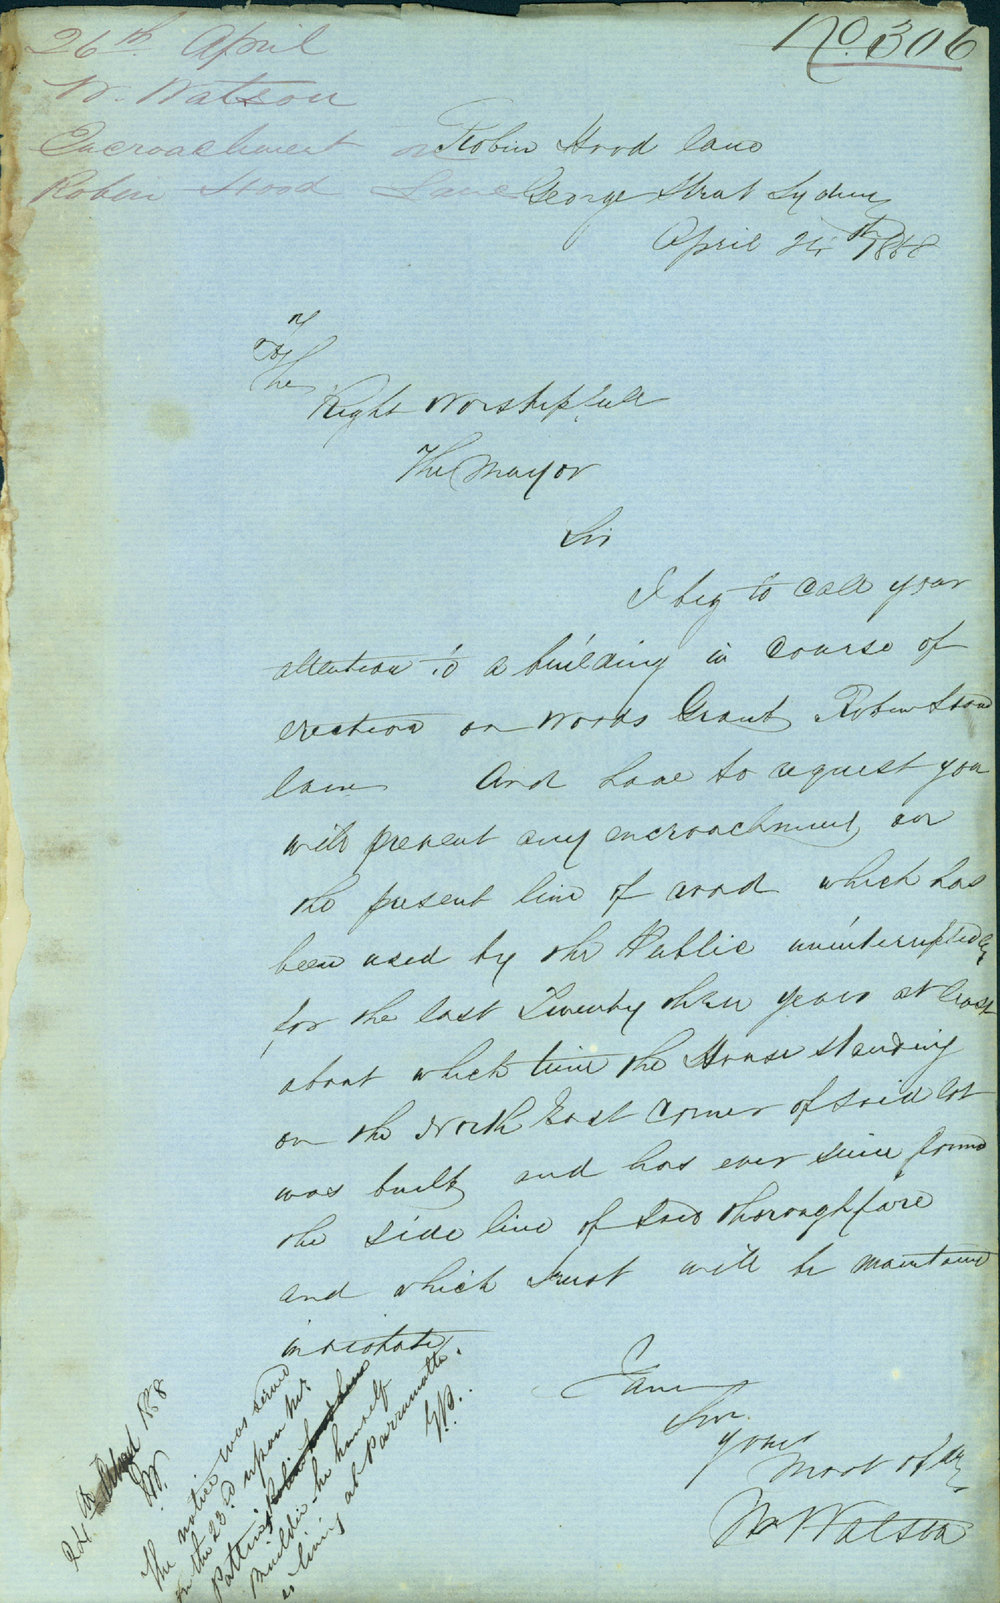 No. 306
26th April
W. Watson
Encroachment on
Robin Hood Lane
Robin Hood lane
George Street Sydney
April 24th 1858
To
The
Right Worshipfull
The Mayor
Sir
I beg to call your
attention to a building in course of
erection on Woods Grant Robin Hood
lane And have to request you
will prevent any encroachment on
the present line of road which has
been used by the Public uninterruptedly
for the last Twenty three years at least
about which time the House standing
on the North East corner of said lot
was built and has ever since formed
the side line of said thoroughfare
and which trust will be maintained
inviolate
I am
Sir
yours
Most obdt
Wm Watson
24th April 1858
The notice was served
on the 23rd upon Mr.
Patting
Builder he himself
is living at Parramatta.